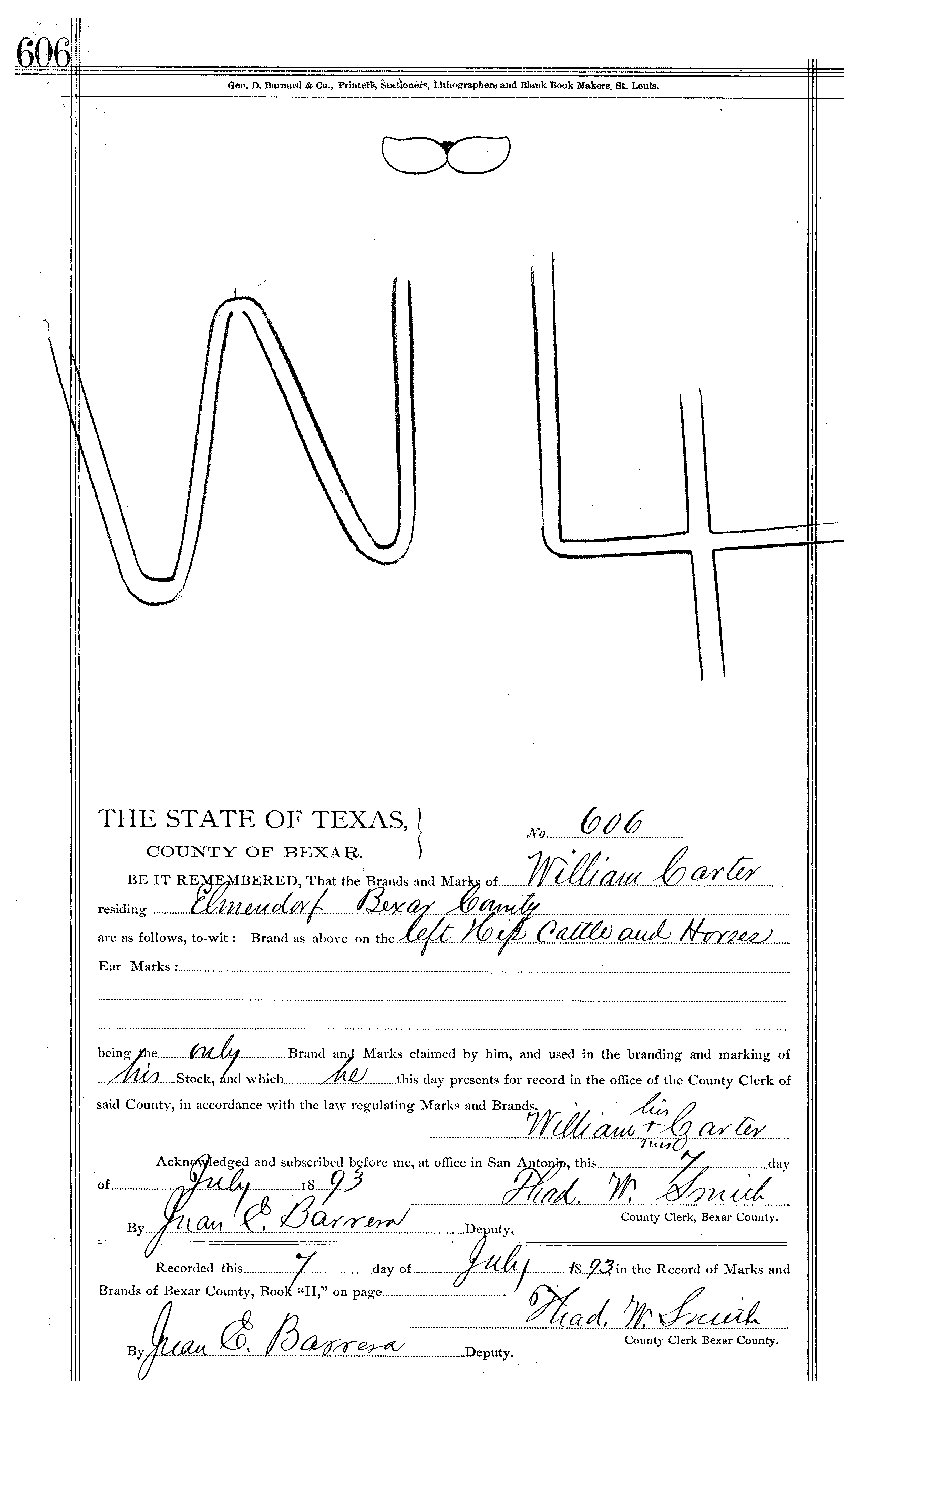 606
Geo. D. Barnard & Co., Printers, Stationers, Lithographers and Blank Book Makers, St. Louis.
W 4
THE STATE OF TEXAS,
COUNTY OF BEXAR.
No. 606
BE IT REMEMBERED, That the Brands and Marks of William Carter
residing Elmendorf Bexar County
are as follows, to-wit: Brand as above on the left Hip Cattle and Horses
Ear Marks:
being the only Brand and Marks claimed by him, and used in the branding and marking of
his Stock, and which he this day presents for record in the office of the County Clerk of
said County, in accordance with the law regulating Marks and Brands.
his
William + Carter
mark
Acknowledged and subscribed before me, at office in San Antonio, this 7 day
of July 1893 Thad. W. Smith
County Clerk, Bexar County.
By Juan E. Barrera Deputy.
Recorded this 7 day of July 1893 in the Record of Marks and
Brands of Bexar County, Book "H," on page
Thad. W. Smith
County Clerk Bexar County.
By Juan E. Barrera Deputy.